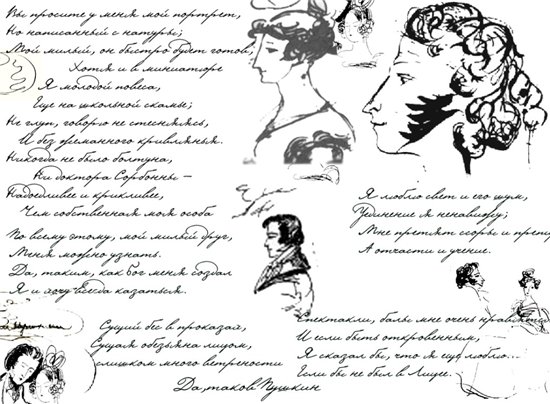 Вы просите у меня мой портрет,
Но написанный с натуры;
Мой милый, он быстро будет готов,
Хотя и в миниатюре
Я молодой повеса,
Еще на школьной скамье;
Не глуп, говорю не стесняясь,
И без жеманного кривлянья.
Никогда не было болтуна,
Ни доктора Сорбонны –
Надоедливее и крикливее,
Чем собственная моя особа
По всему этому, мой милый друг,
Меня можно узнать.
Да, таким, как бог меня создал
Я и хочу всегда казаться.
Сущий бес в проказах,
Сущая обезьяна лицом,
слишком много ветрености
Да, таков Пушкин
Я люблю свет и его шум,
Уединение я ненавижу;
Мне претят ссоры и
А отчасти и учение.
Спектакли, балы мне очень нравятся
И если быть откровенным,
Я сказал бы, что я еще люблю...
Если бы не был в Лицее.